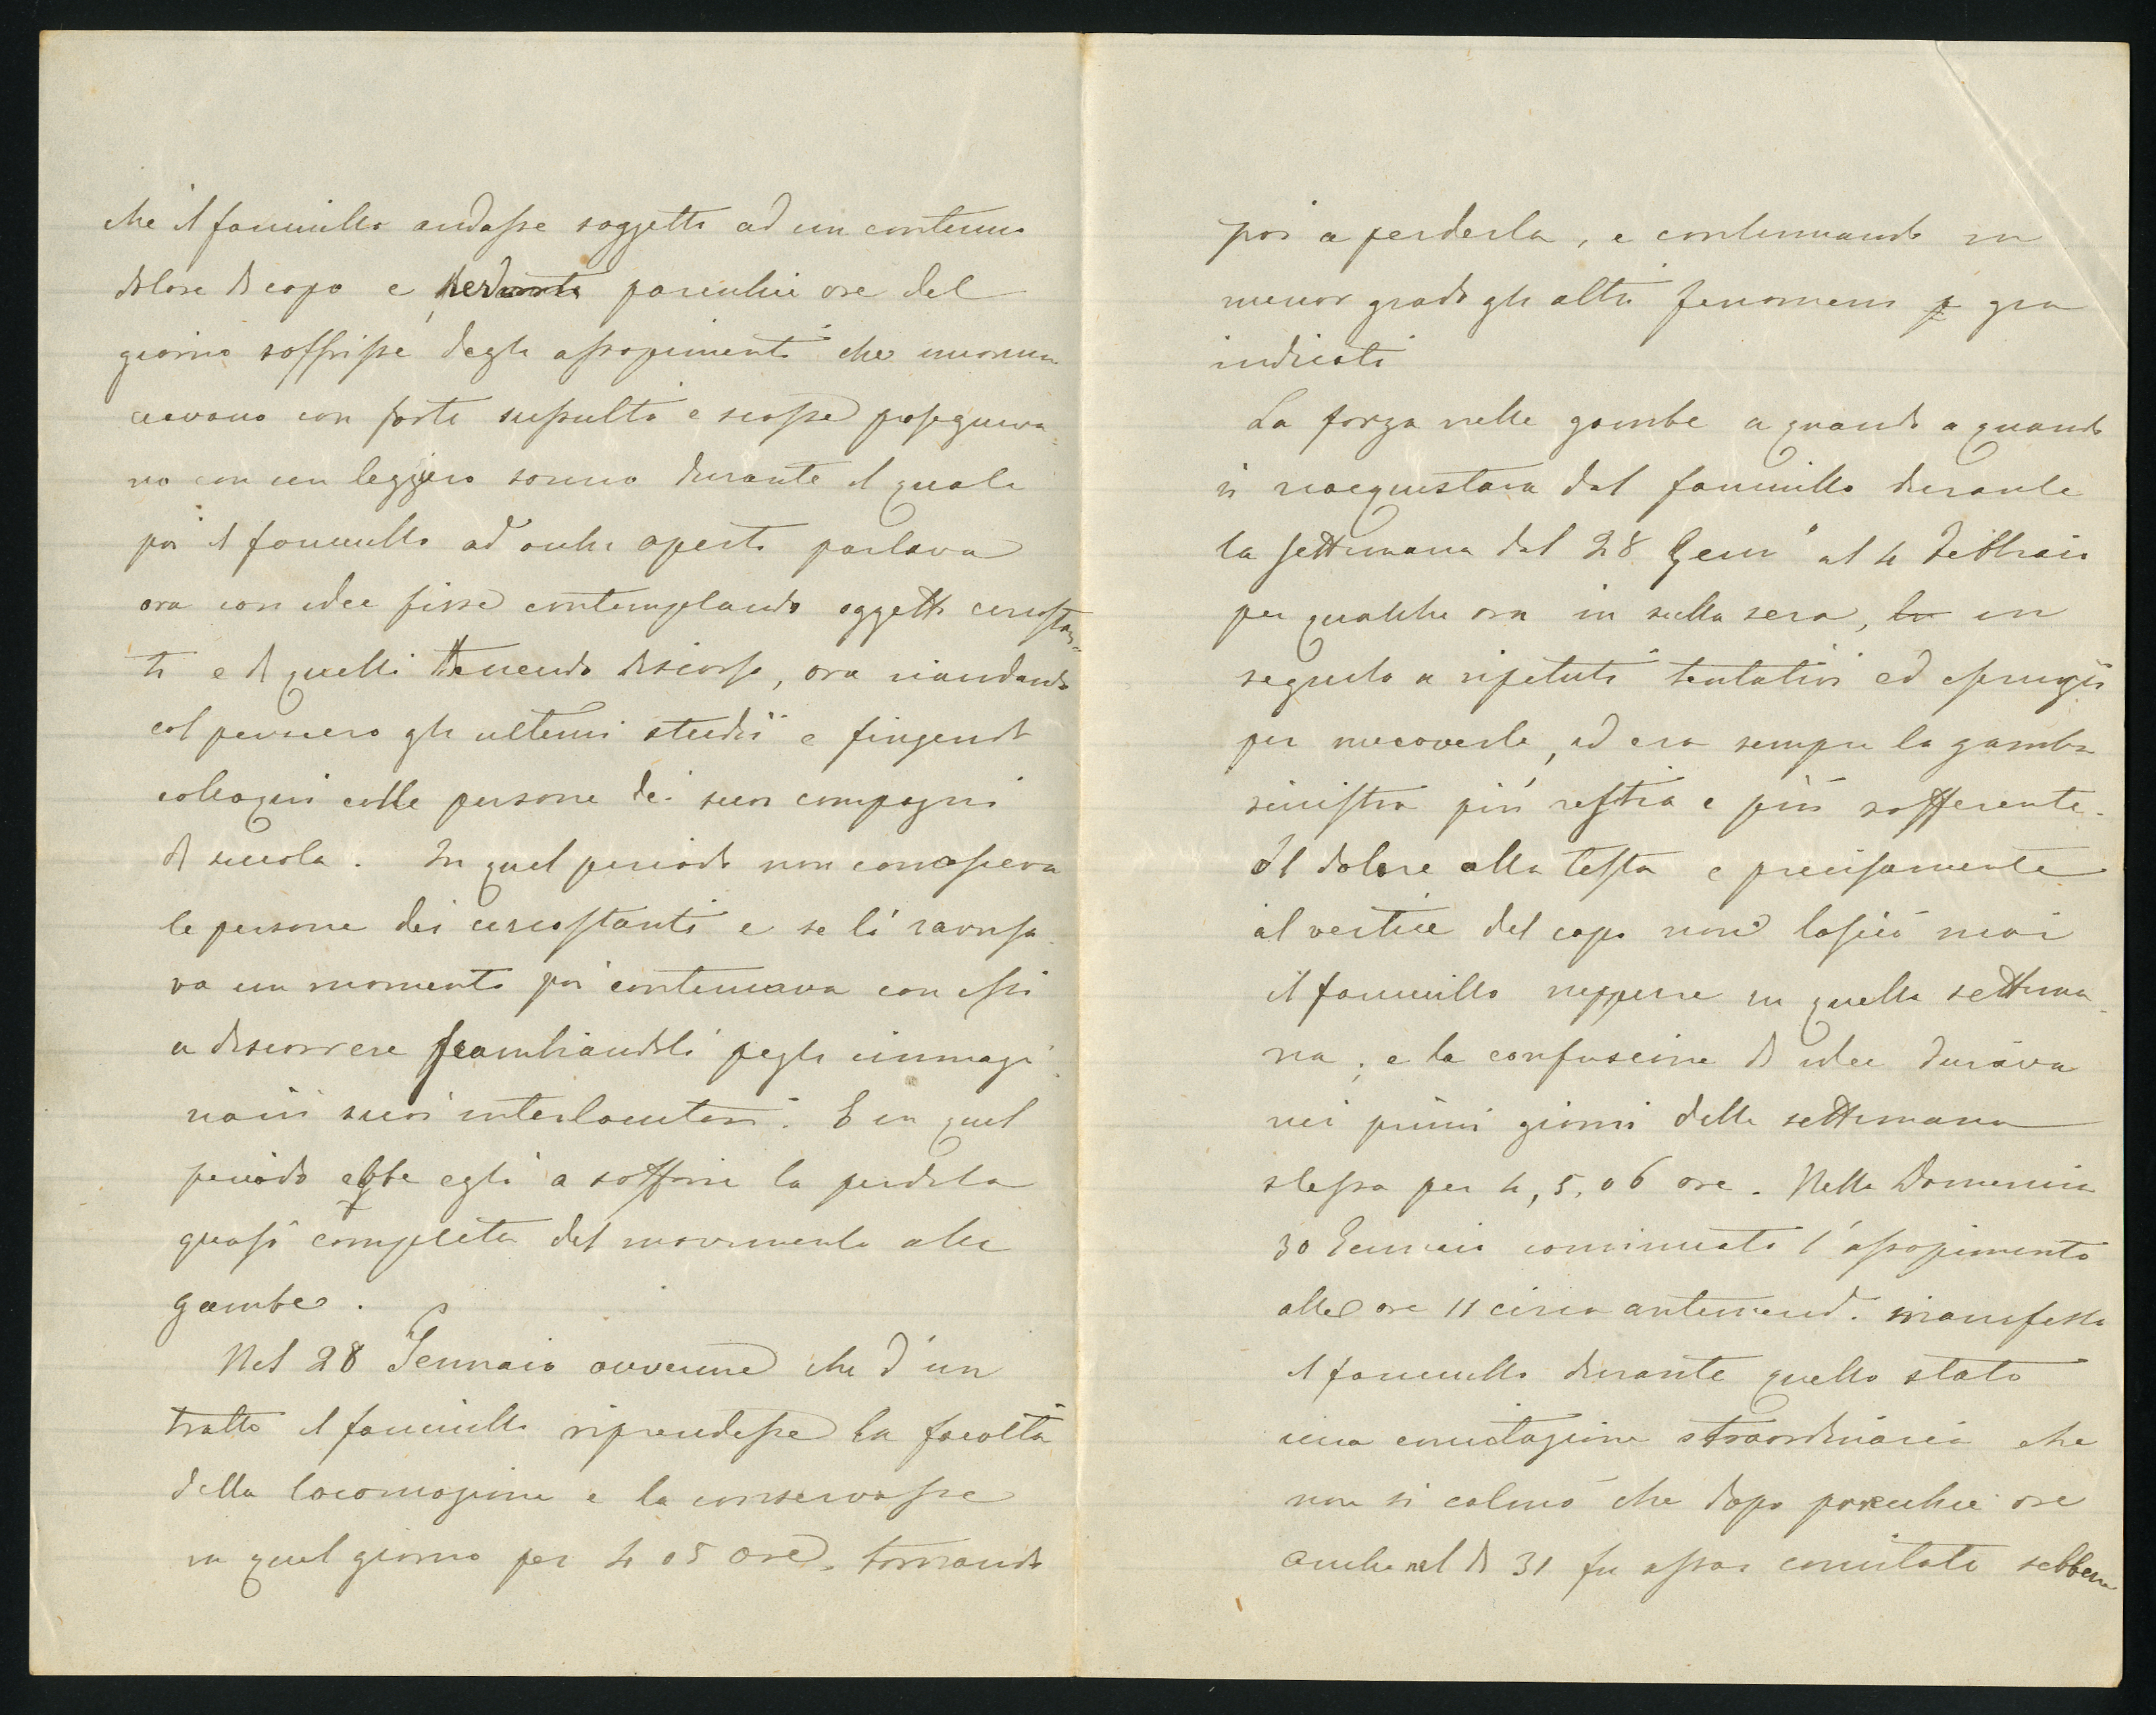 che il fanciullo andasse soggetto ad un continuo
dolore di capo e per parecchie ore del
giorno soffrisse degli assopimenti che incomin
ciavano con forti sussulti e scosse proseguiva=
no con un leggiero sonno durante il quale
poi il fanciullo ad occhi aperti parlava
ora con idee fisse contemplando oggetti circostan=
ti e di quelli tenendo discorso, ora riandando
col pensiero gli ultimi studii e fingendo
colloqui colle persone dei suoi compagni
di scuola. In quel periodo non conosceva
le persone dei circostanti e se li ravvisa
va un momento poi continuava con essi
a discorrere scambiandoli pegli immagi
narii suoi interlocutori. E in quel
periodo ebbe egli a soffrire la perdita
quasi completa del movimento alle
gambe.
Nel 28 Gennaio avvenne che d'un
tratto il fanciullo riprendesse la facoltà
della locomozione e la conservasse
in quel giorno per 4 o 5 ore, tornando
poi a perderla, e continuando in
minor grado gli altri fenomeni già
indicati
La forza nelle gambe a quando a quando
si riacquistava dal fanciullo durante
la settimana dal 28 Genn° al 4 Febbraio
per qualche ora in sulla sera, in
seguito a ripetuti tentativi ed
per muoverle, ed era sempre la gamba
sinistra più restia e più sofferente.
Il dolore alla testa e precisamente
al vertice del capo non lasciò mai
il fanciullo neppure in quella settima
na; e la confusione di idee durava
nei primi giorni della settimana
stessa per 4, 5, o 6 ore. Nella Domenica
30 Gennaio cominciato l'assopimento
alle ore 11 circa antimerid. manifestò
il fanciullo durante quello stato
una concitazione straordinaria che
non si calmò che dopo parecchie ore
Anche nel dì 31 fu assai concitato sebbene